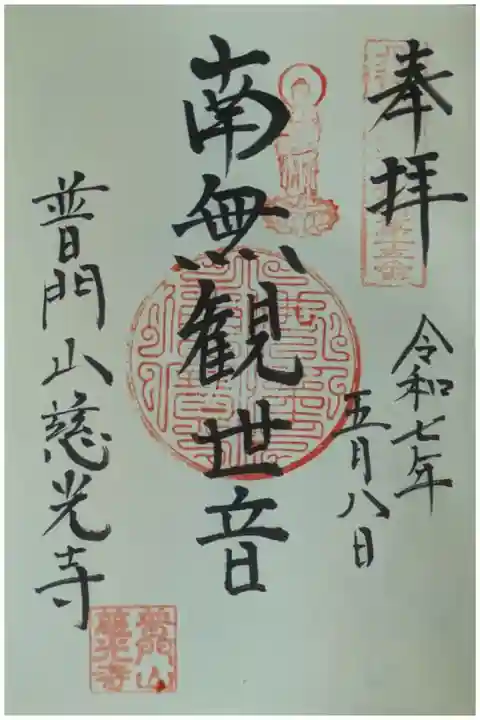 奉拝
令和七年
五月八日
南無観世音
普門山慈光寺
普門山
慈光寺